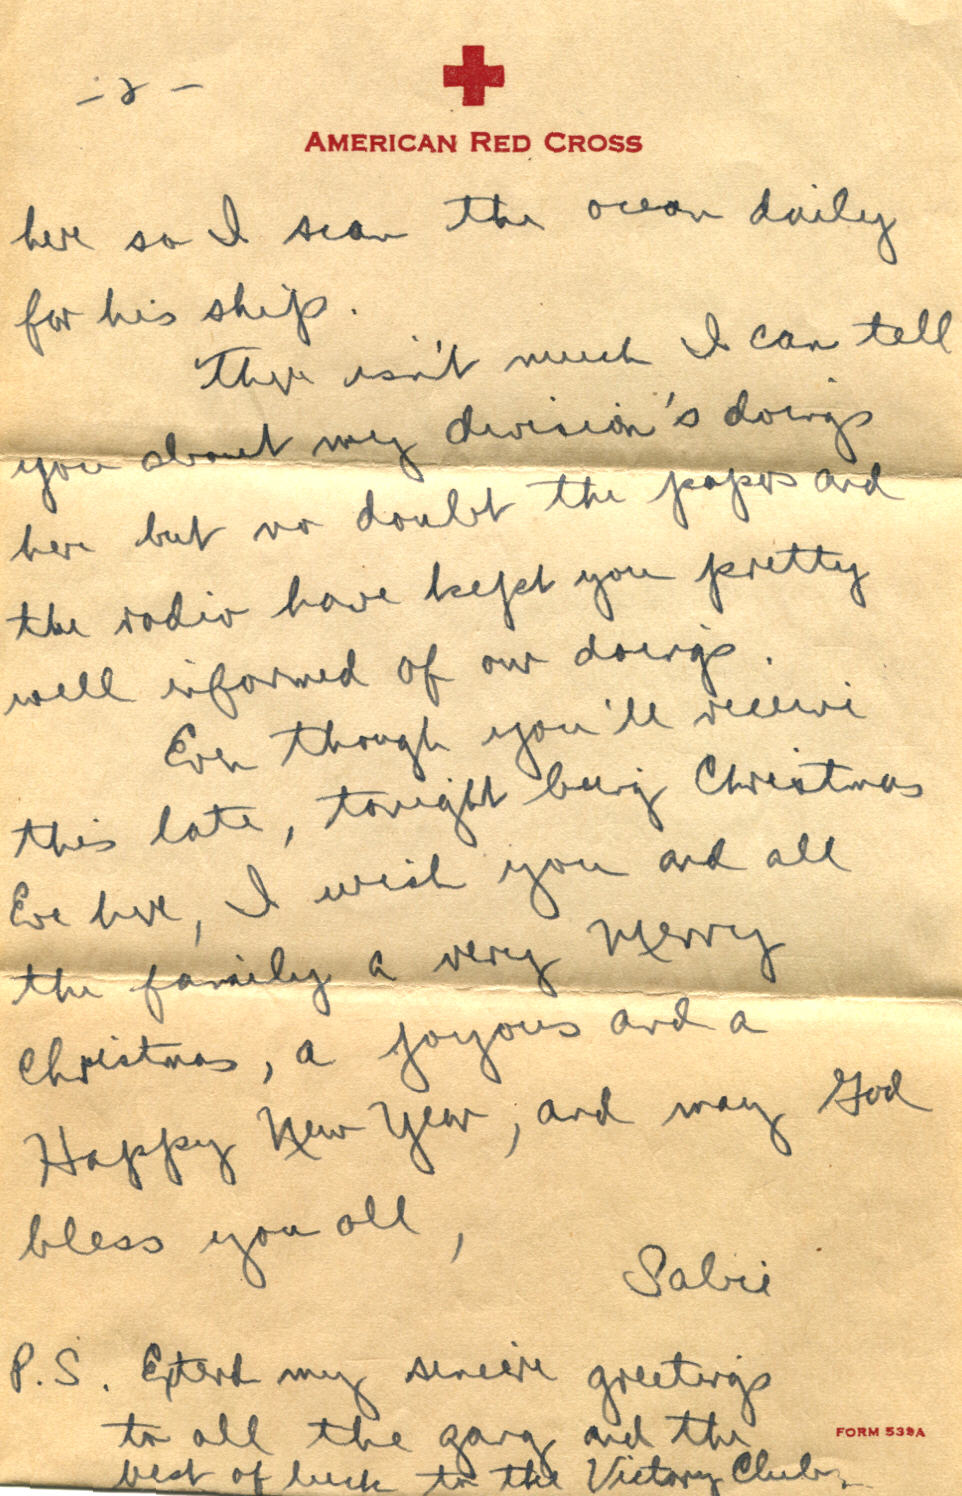 - 2 -
AMERICAN RED CROSS
here so I scan the ocean daily
for his ship.
There isn't much I can tell
you about my division's doings
here but no doubt the papers and
the radio have kept you pretty
well informed of our doings.
Even though you'll receive
this late, tonight being Christmas
Eve here, I wish you and all
the family a very Merry
Christmas, a joyous and a
Happy New Year, and may God
bless you all,
Sabie
P.S. Extend my sincere greetings
to all the gang and the
best of luck to the Victory Club.
FORM 539A